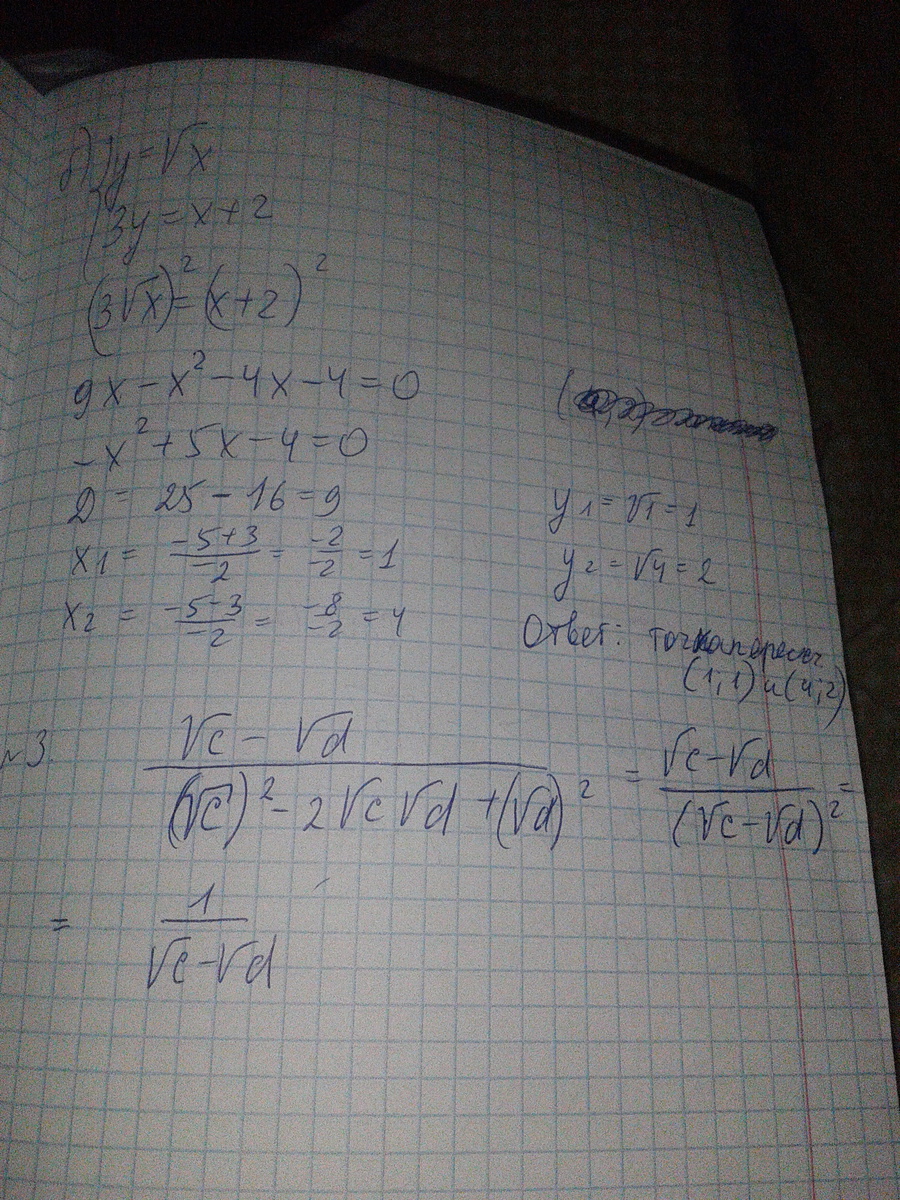 б) { y = √x
3y = x + 2
(3√x)² = (x + 2)²
9x − x² − 4x − 4 = 0
−x² + 5x − 4 = 0
D = 25 − 16 = 9
x₁ = (−5+3)/(−2) = (−2)/(−2) = 1
x₂ = (−5−3)/(−2) = (−8)/(−2) = 4
y₁ = √1 = 1
y₂ = √4 = 2
Ответ:
(1; 1) и (4; 2)
№3. (√c − √d)/((√c)² − 2√c√d + (√d)²) = (√c − √d)/((√c − √d)²) =
= 1/(√c − √d)